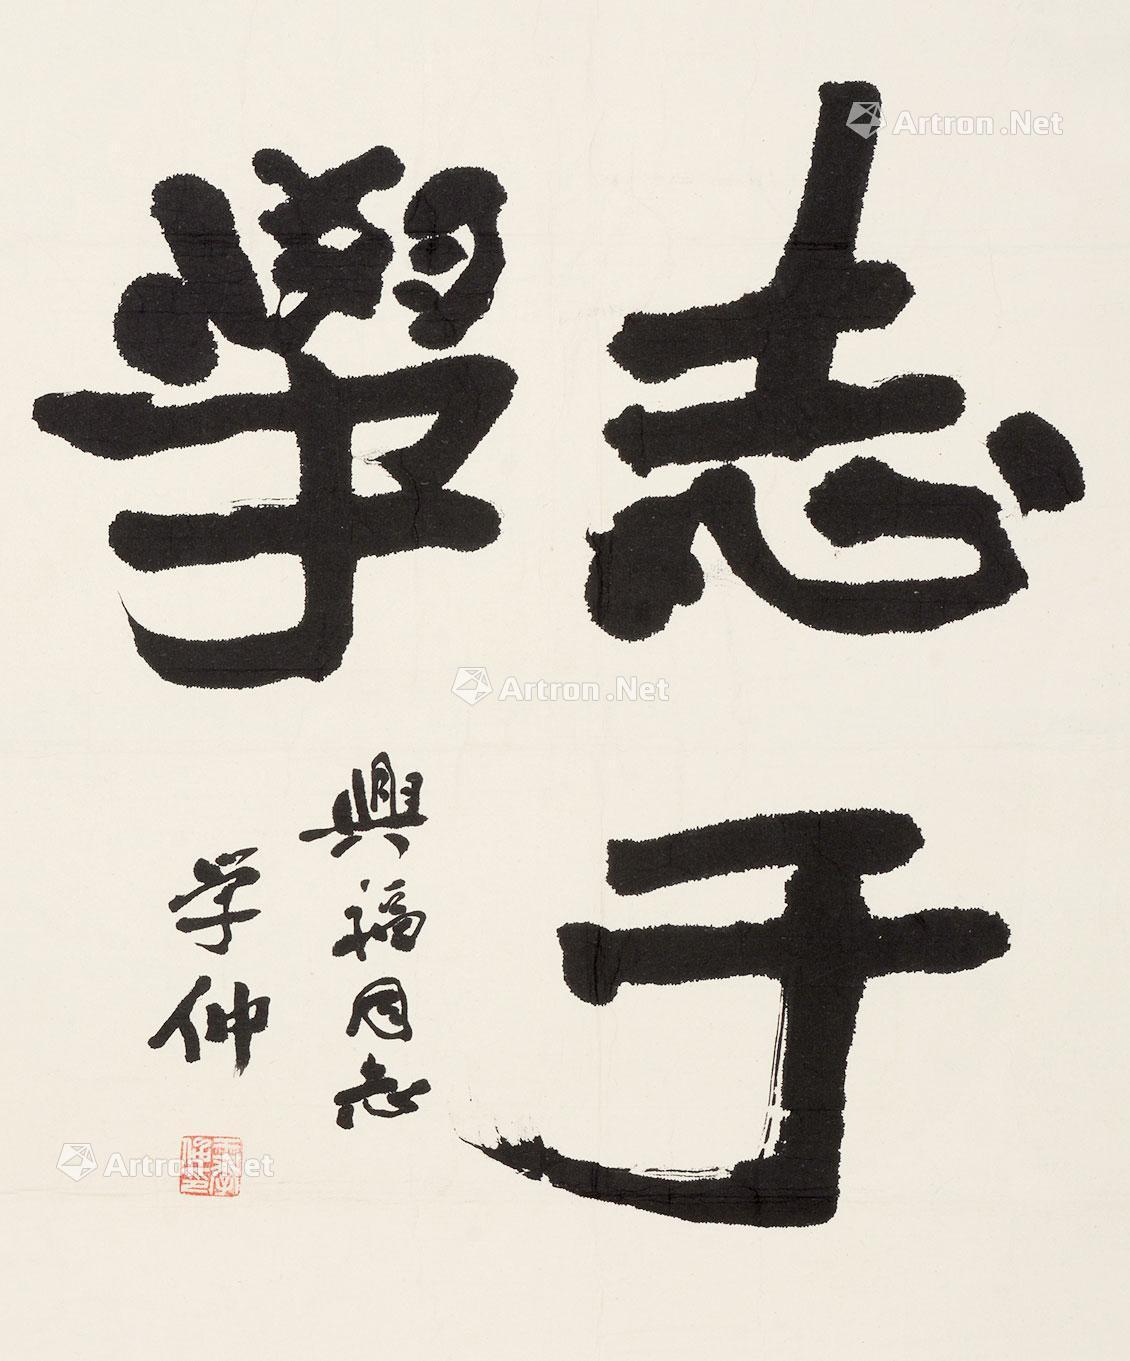 志于
學
興福同志
学仲
Artron.Net
Artron.Net
Artron.Net